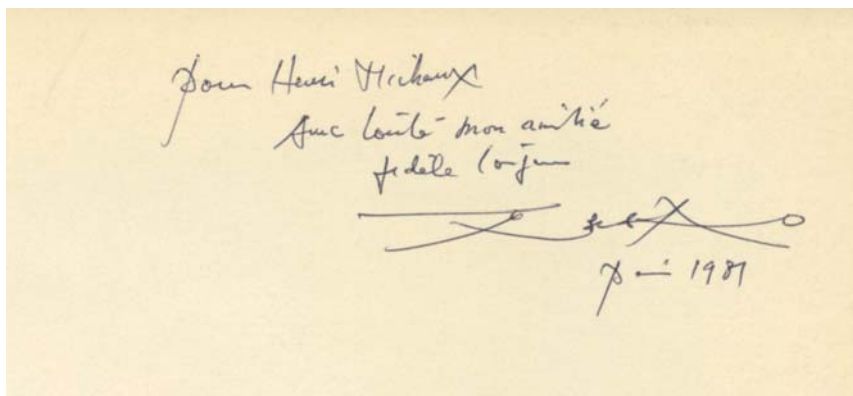 Pour Henri Michaux
Avec toute mon amitié
fidèle toujours
Paris 1981